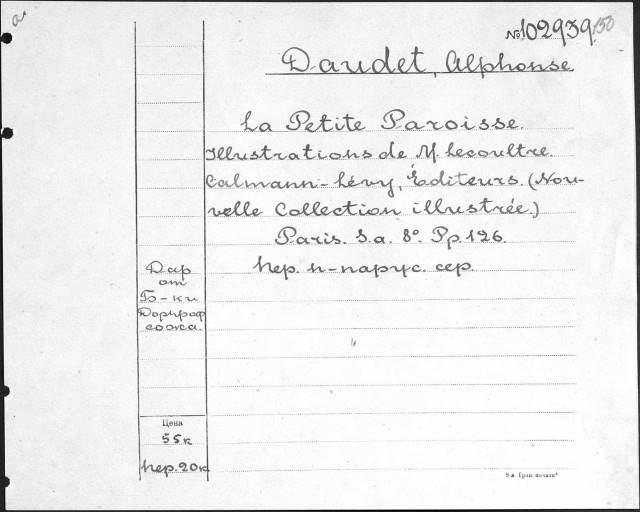 №102939
Daudet, Alphonse.
La Petite Paroisse.
Illustrations de M. Lecoultre.
Calmann-Lévy, Éditeurs. (Nou-
velle Collection illustrée.)
Paris. S.a. 8°. Pp. 126.
Пер. п-парус. сер.
Дар
от
Б-ки
Цена
55к
Пер. 20к